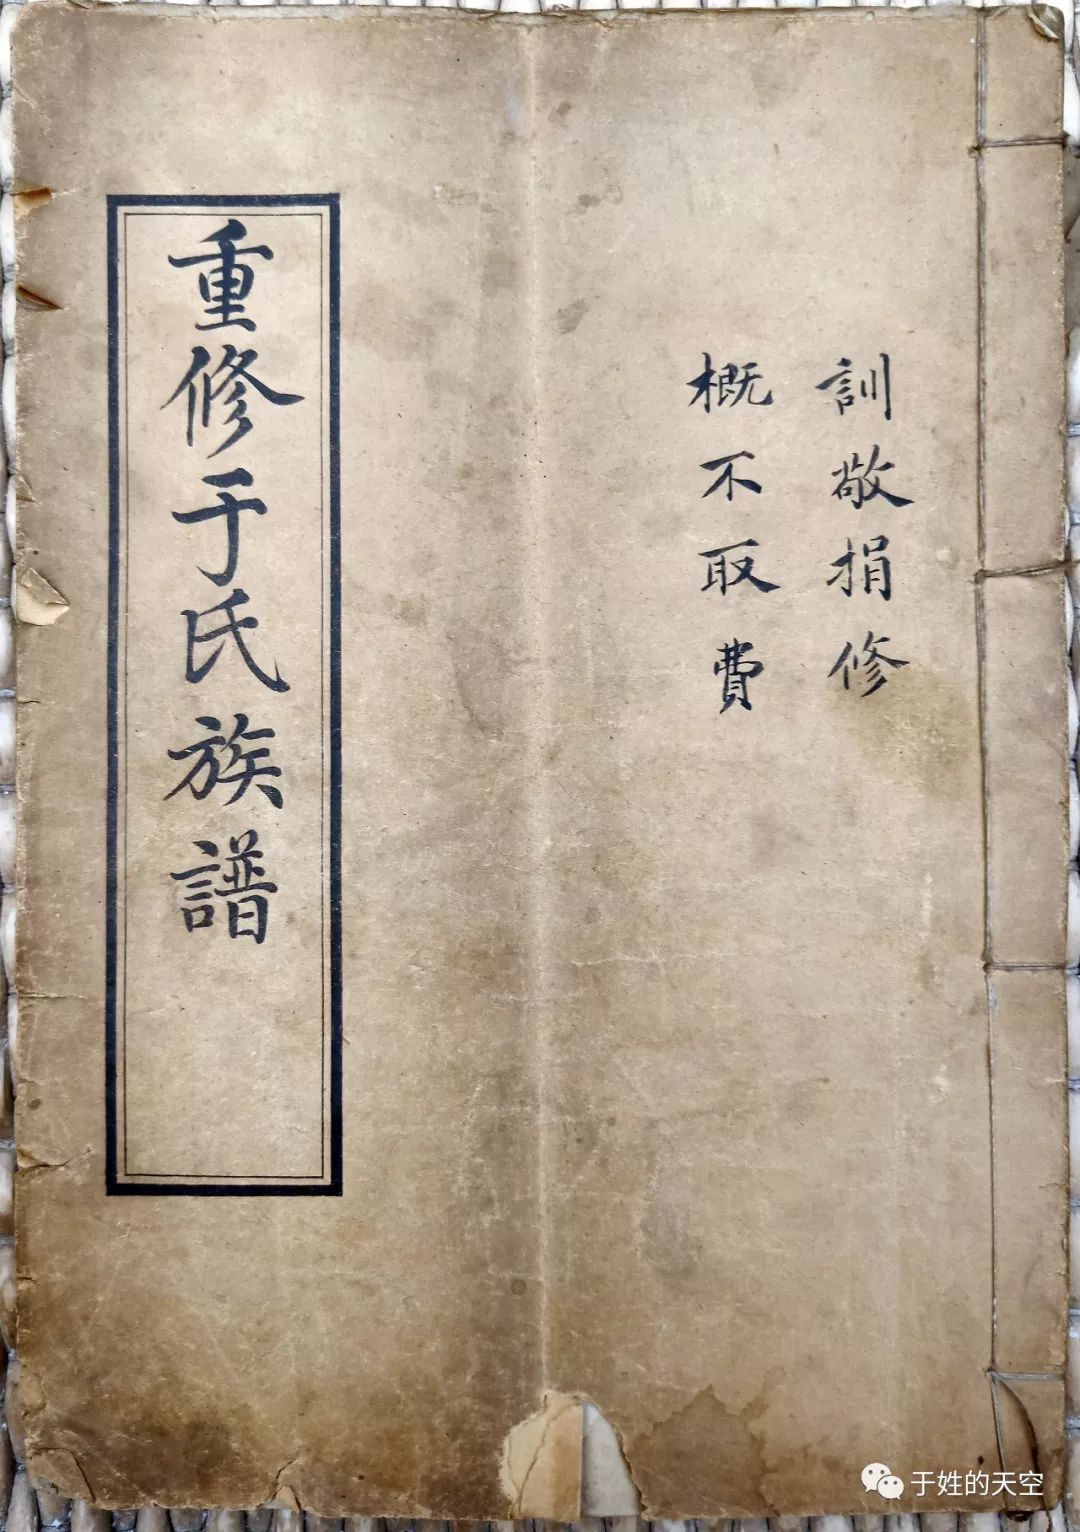 訓敬捐修
概不取費
重修于氏族譜
于姓的天空